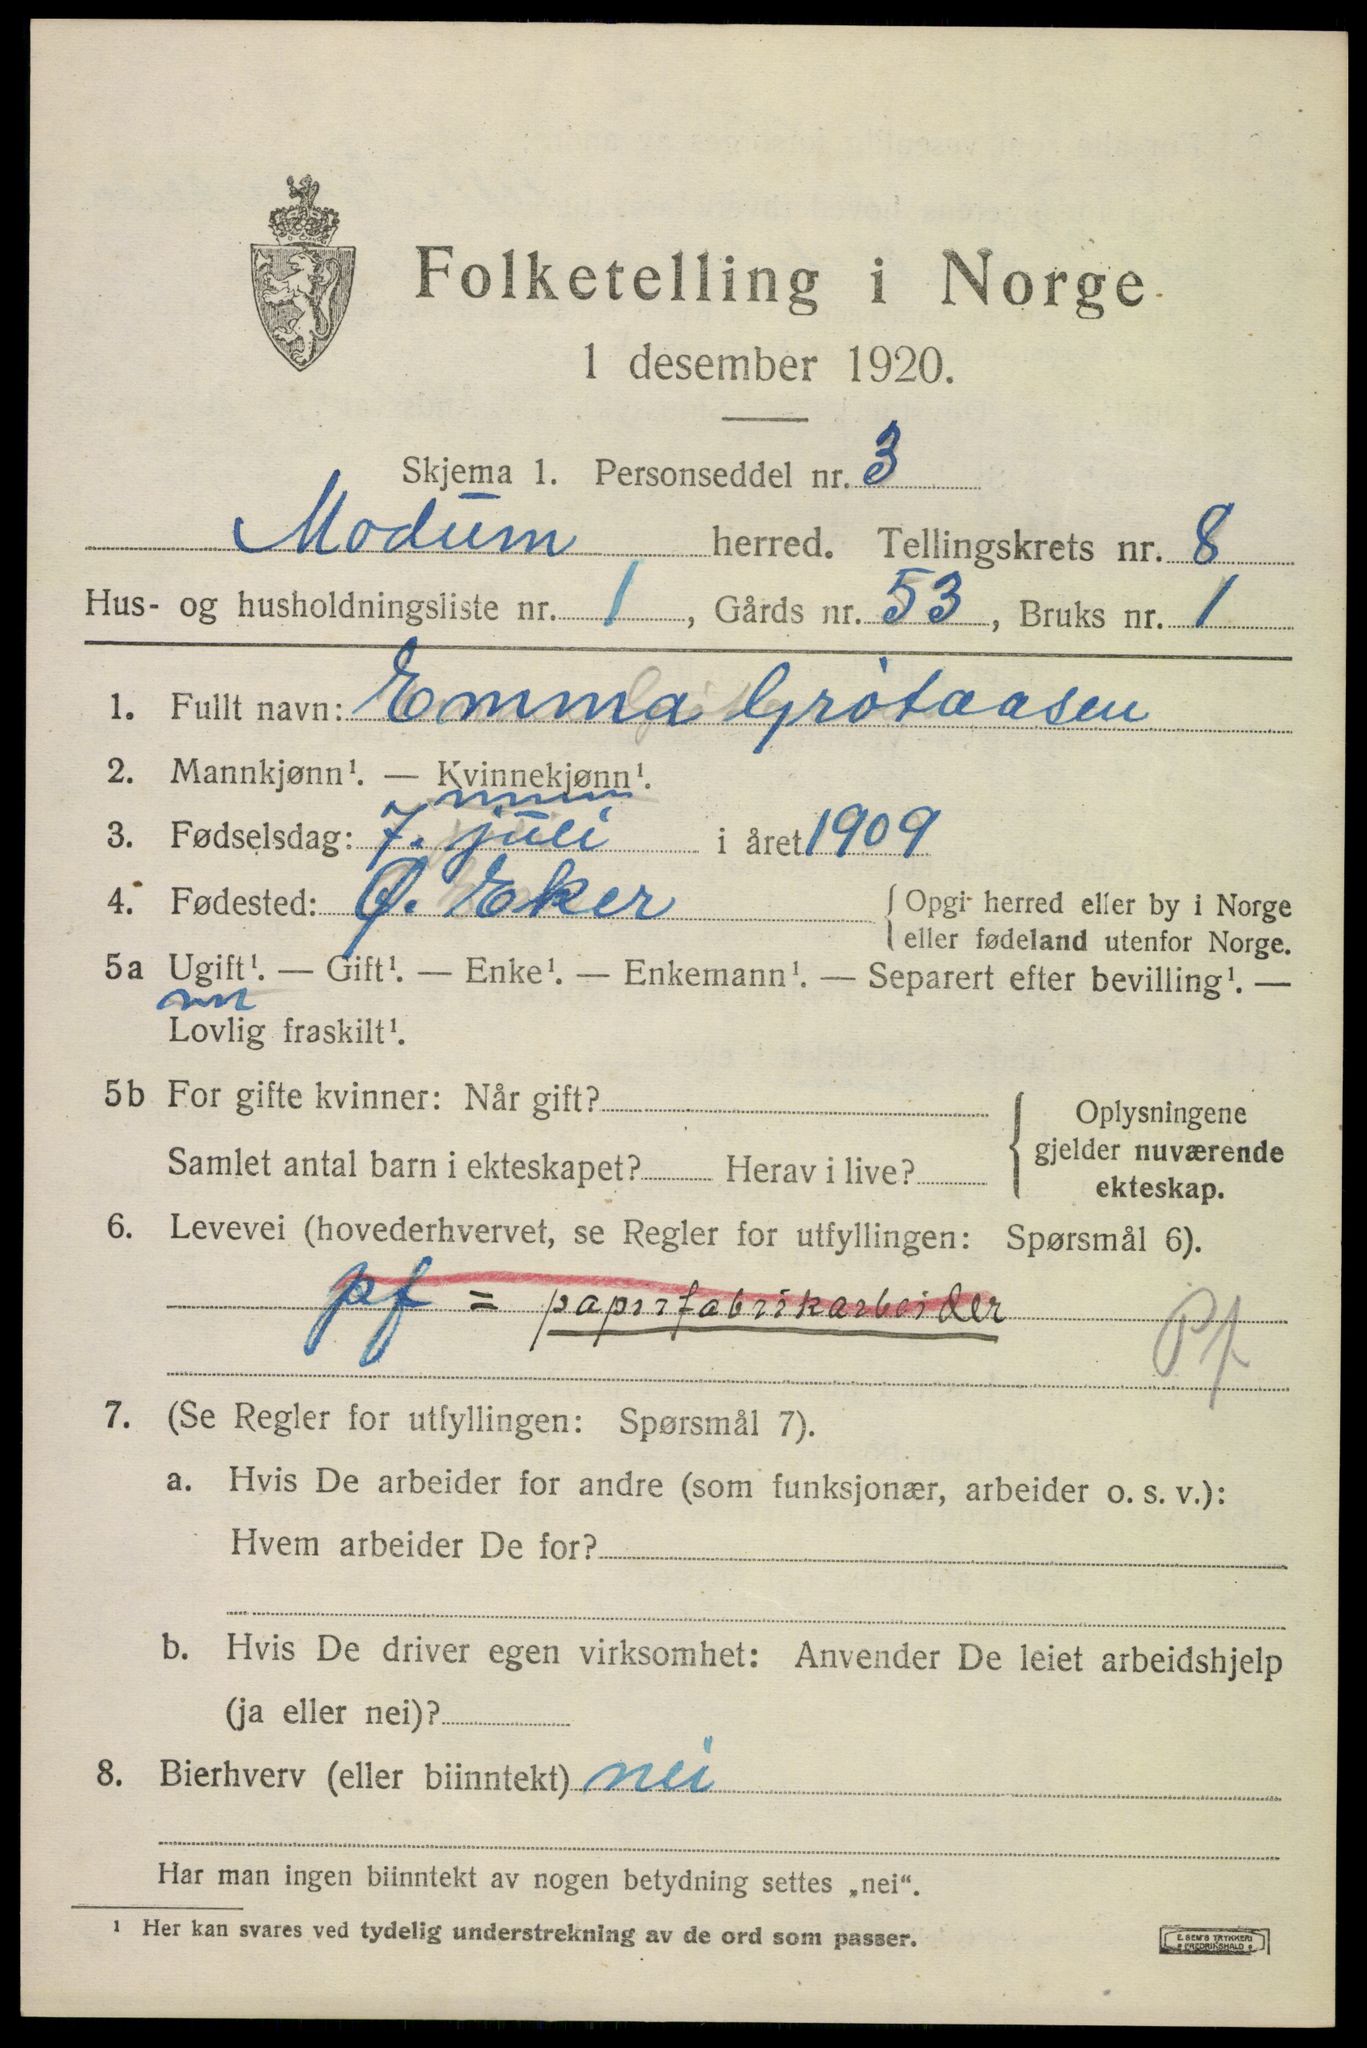 Folketelling i Norge
1 desember 1920.
Skjema 1. Personseddel nr. 3
Modum herred. Tellingskrets nr. 8
Hus- og husholdningsliste nr. 1, Gårds nr. 53, Bruks nr. 1
1. Fullt navn: Emma Grøtaasen
2. Mannkjønn¹. — Kvinnekjønn¹.
3. Fødselsdag: 7. juli i året 1909
4. Fødested: Ø. Eker {Opgi herred eller by i Norge
eller fødeland utenfor Norge.
5a Ugift¹. — Gift¹. — Enke¹. — Enkemann¹. — Separert efter bevilling¹. —
Lovlig fraskilt¹.
5b For gifte kvinner: Når gift?
Samlet antal barn i ekteskapet? Herav i live?
Oplysningene
gjelder nuværende
ekteskap.
6. Levevei (hovederhvervet, se Regler for utfyllingen: Spørsmål 6).
pf = papirfabrikarbeider
Pf
7. (Se Regler for utfyllingen: Spørsmål 7).
a. Hvis De arbeider for andre (som funksjonær, arbeider o. s. v.):
Hvem arbeider De for?
b. Hvis De driver egen virksomhet: Anvender De leiet arbeidshjelp
(ja eller nei)?
8. Bierhverv (eller biinntekt) nei
Har man ingen biinntekt av nogen betydning settes „nei“.
¹ Her kan svares ved tydelig understrekning av de ord som passer.
E. SEM'S TRYKKERI
FREDRIKSHALD